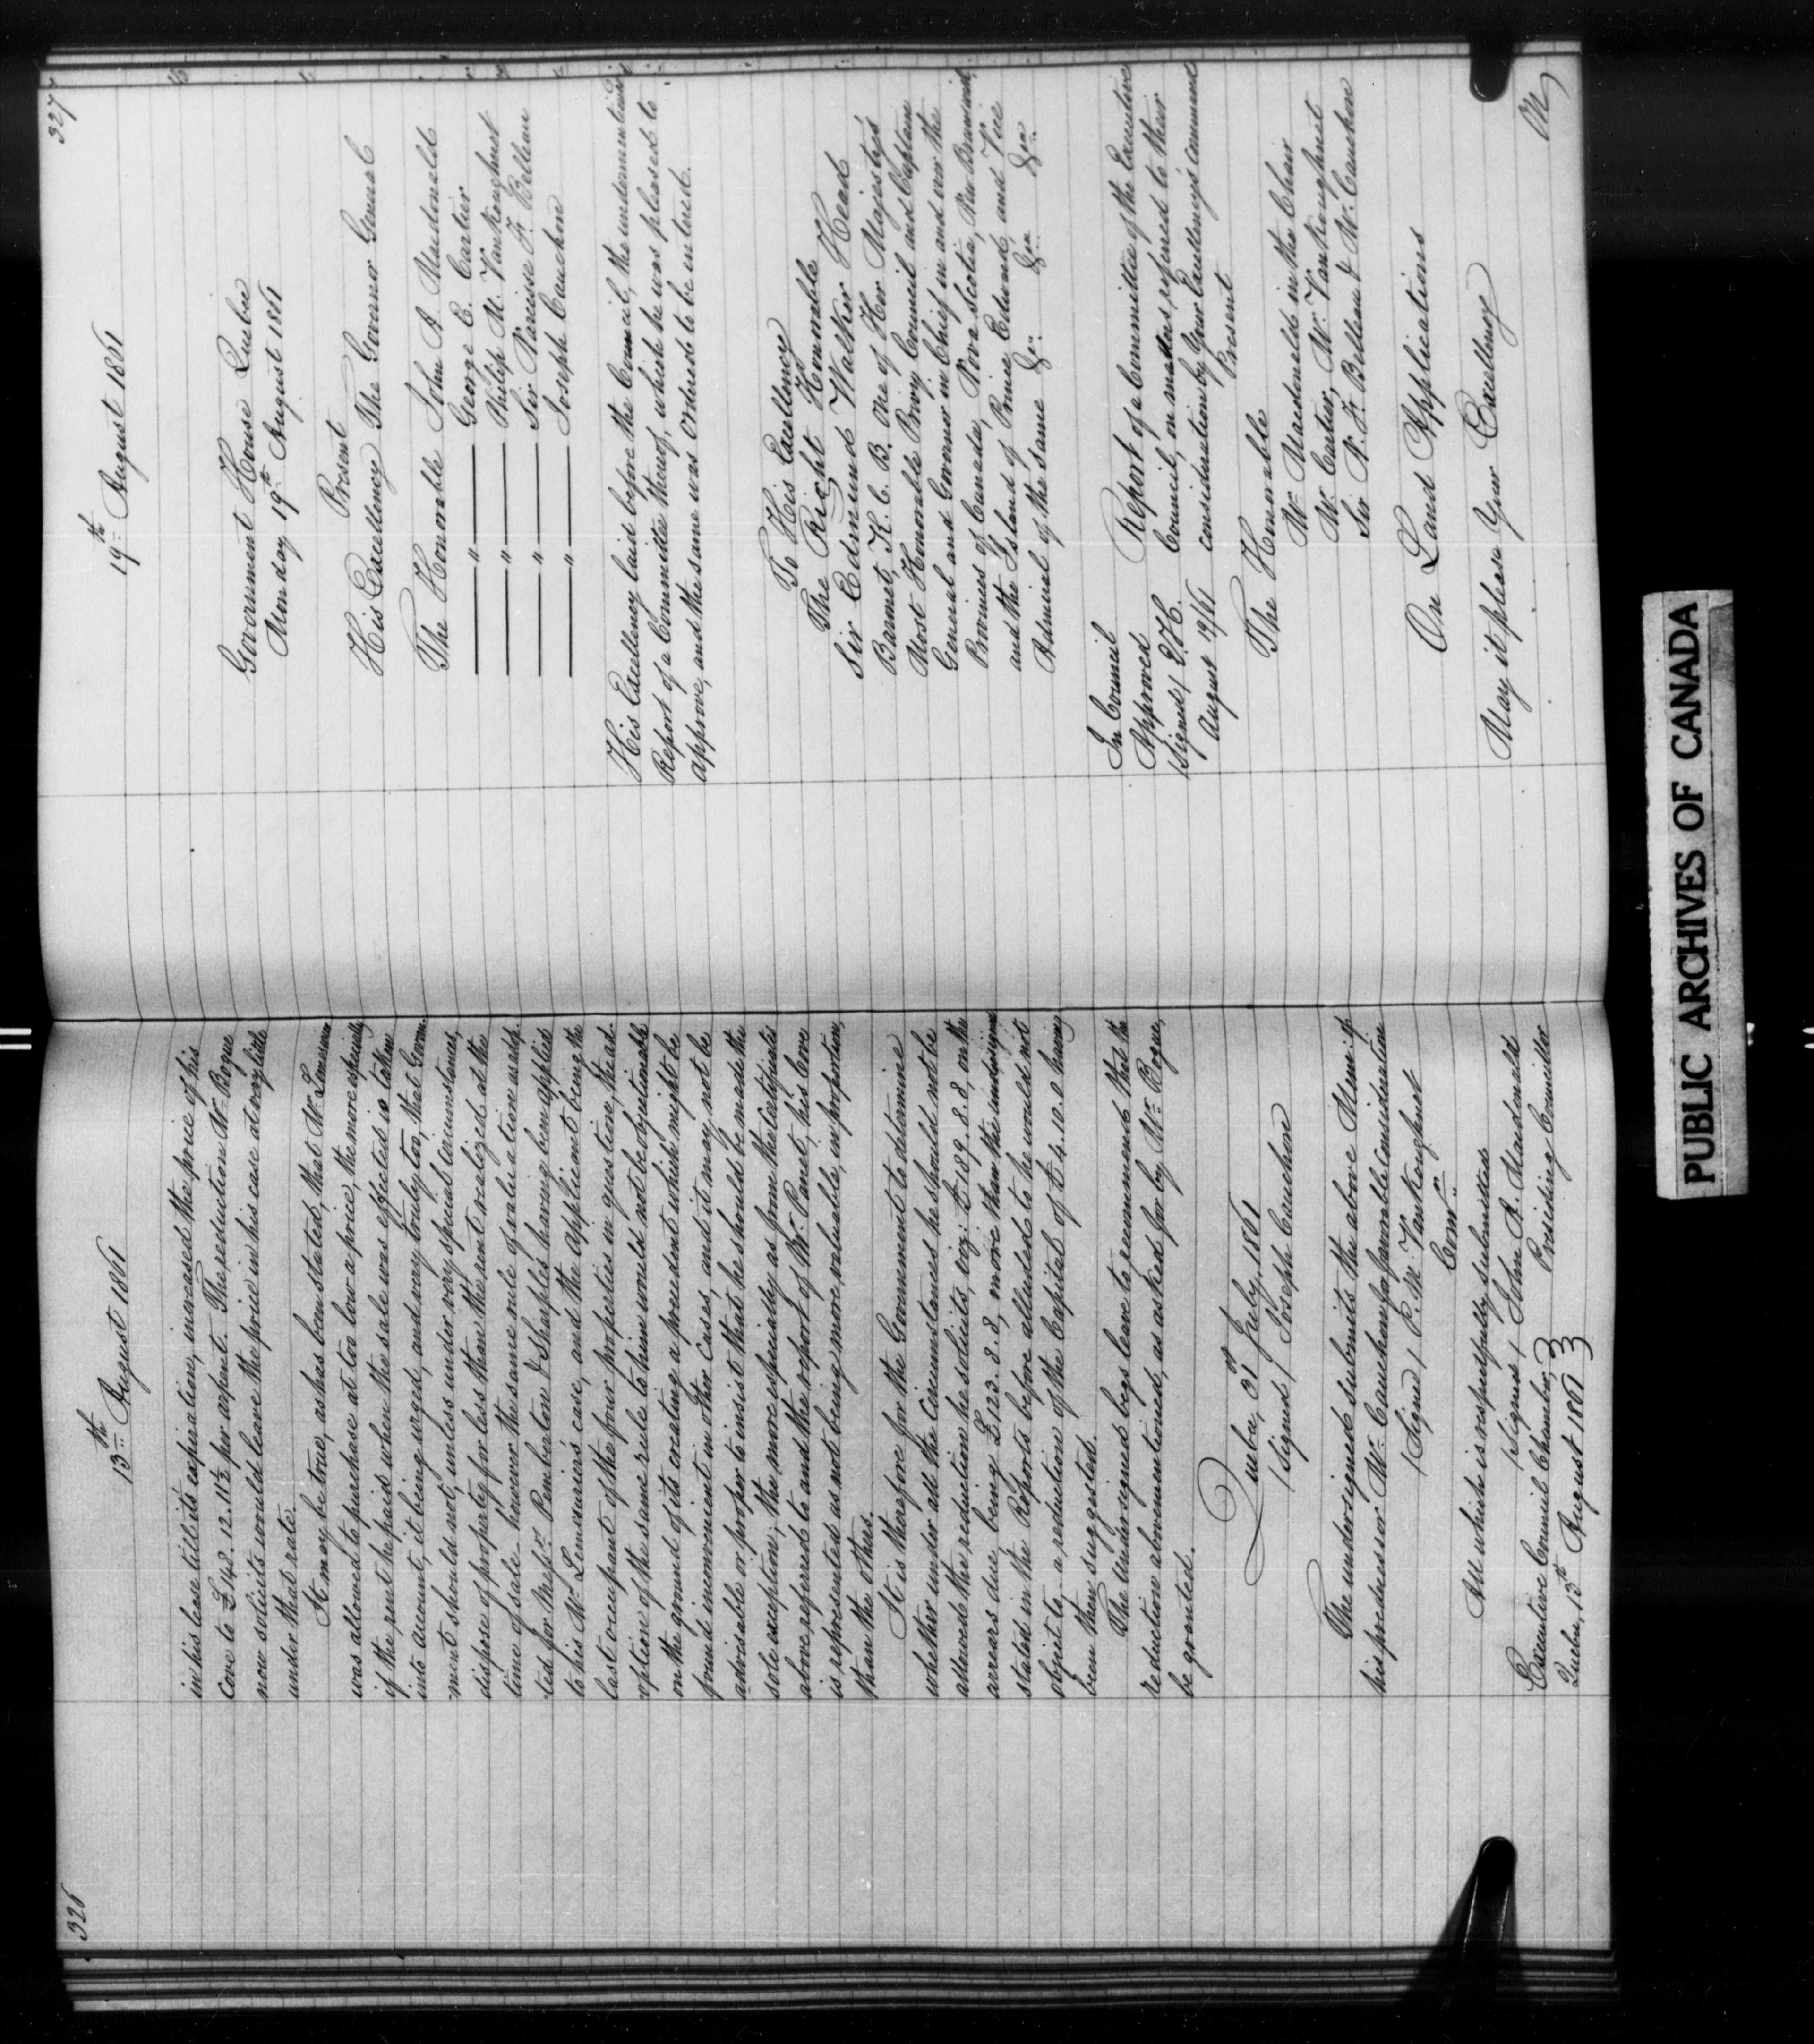 326
13th August 1861
in his lease till its expiration, increased the price of his
Cove to £148.12.11½ per arpent. The reduction Mr. Bogue
now solicits would leave the price in his case at very little
under that rate.
It may be true, as has been stated, that Mr. Lemesurier
was allowed to purchase at too low a price, the more especially
if the rent he paid when the sale was effected is taken
into account, it being urged, and very truly too, that Govern-
ment should not, unless under very special circumstances,
dispose of property for less than the rent realized at the
time of sale - however the same rule of valuation as adop-
ted for Messrs. Pemberton & Sharples having been applied
to his Mr. Lemesurier's case, and the applicant being the
last occupant of the four properties in question, the ad-
option of the same rule to him would not be objectionable
on the ground of its creating a precedent which might be
found inconvenient in other cases, and it may not be
advisable or proper to insist that he should be made the
sole exception, the more especially as from the Certificates
above referred to and the report of Mr. Panet, his Cove
is represented as not being more valuable, in proportion,
than the others.
It is therefore for the Government to determine
whether under all the Circumstances he should not be
allowed the reduction he solicits, viz: £189.8.8, on the
arrears due, being £123.8.8, more than the
stated in the Reports before alluded to he would not
object to - a reduction of the Capital of £4.10.0 having
been then suggested.
The Undersigned begs leave to recommend that the
reduction abovementioned, as asked for by Mr. Bogue,
be granted.
Quebec, 31st July, 1861
(Signed) Joseph Cauchon
The undersigned submits the above Mem: of
his predecessor Mr. Cauchon for favorable consideration
(Signed) P. M. Vankoughnet
Comr.
All which is respectfully submitted
(Signed) John A. Macdonald
Executive Council Chamber, } Presiding Councillor
Quebec, 13th August 1861 }
327
19th August 1861
Government House Quebec
Monday 19th August 1861
Present
His Excellency The Governor General
The Honorable John A. Macdonald
— " — George E. Cartier
— " — Philip M. Vankoughnet
— " — Sir Narcisse F. Belleau
— " — Joseph Cauchon
His Excellency laid before the Council, the undermentioned
Report of a Committee thereof, which he was pleased to
approve, and the same was Ordered to be entered.
To His Excellency
The Right Honorable
Sir Edmund Walker Head
Baronet, K.C.B. One of Her Majesty's
Most Honorable Privy Council and Captain
General and Governor in Chief in and over the
Provinces of Canada, Nova Scotia, New Brunswick
and the Island of Prince Edward, and Vice
Admiral of the same &c: &c: &c:
In Council
Approved
(Signed) E. H.
August 19/61
Report of a Committee of the Executive
Council, on matters, referred to their
consideration by Your Excellency's command
Present
The Honorable
Mr. Macdonald in the Chair
Mr. Cartier, Mr. Vankoughnet
Sir N. F. Belleau & Mr. Cauchon
On Land Applications
May it please Your Excellency
PUBLIC ARCHIVES OF CANADA